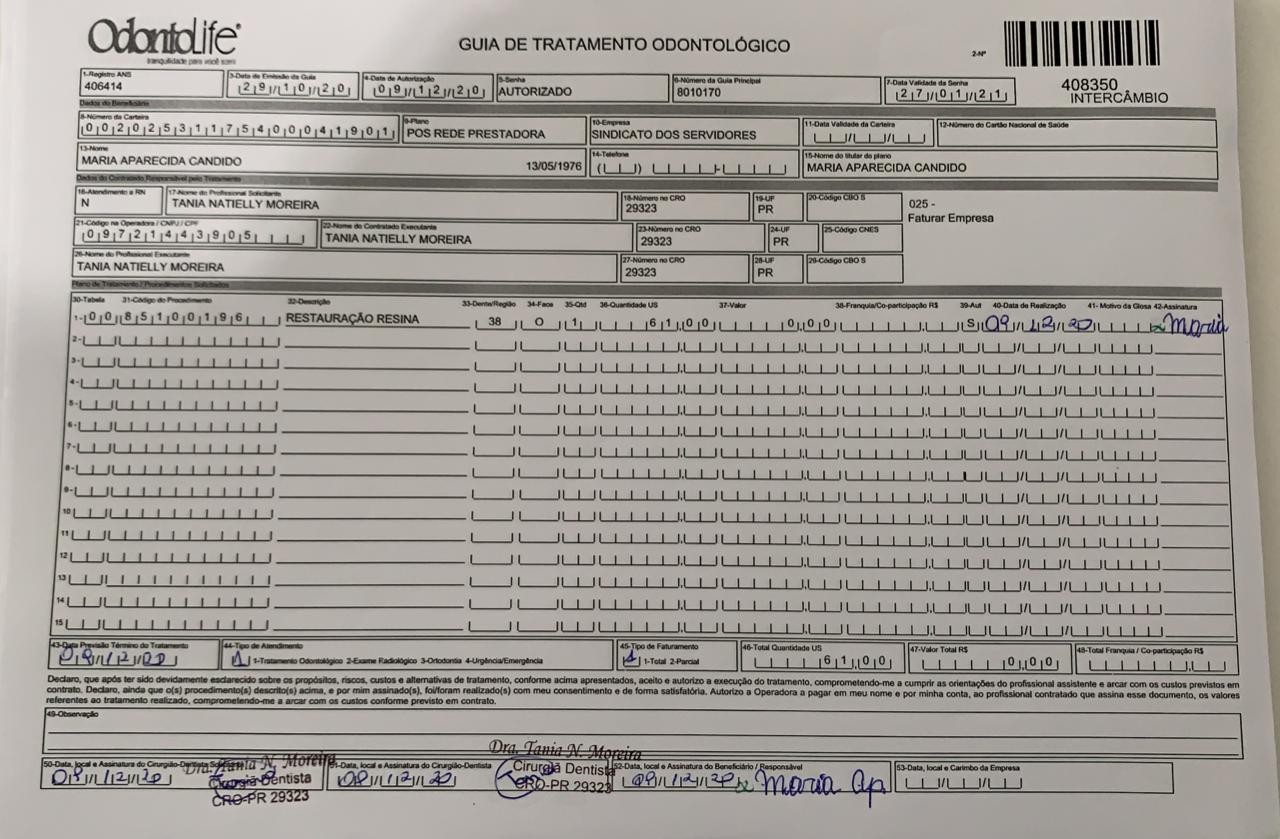 OdontoLife
tranquilidade para você sorrir
GUIA DE TRATAMENTO ODONTOLÓGICO
2-Nº
408350
INTERCÂMBIO
1-Registro ANS 3-Data de Emissão da Guia 4-Data de Autorização 5-Senha 6-Número da Guia Principal 7-Data Validade da Senha
406414 29/10/20 09/12/20 AUTORIZADO 8010170 27/01/21
Dados do Beneficiário
8-Número da Carteira 9-Plano 10-Empresa 11-Data Validade da Carteira 12-Número do Cartão Nacional de Saúde
00202531175400041901 POS REDE PRESTADORA SINDICATO DOS SERVIDORES
13-Nome 14-Telefone 15-Nome do titular do plano
MARIA APARECIDA CANDIDO 13/05/1976 MARIA APARECIDA CANDIDO
Dados do Contratado Responsável pelo Tratamento
16-Atendimento a RN 17-Nome do Profissional Solicitante 18-Número no CRO 19-UF 20-Código CBO S
N TANIA NATIELLY MOREIRA 29323 PR
025 -
Faturar Empresa
21-Código na Operadora / CNPJ / CPF 22-Nome do Contratado Executante 23-Número no CRO 24-UF 25-Código CNES
09721443905 TANIA NATIELLY MOREIRA 29323 PR
26-Nome do Profissional Executante 27-Número no CRO 28-UF 29-Código CBO S
TANIA NATIELLY MOREIRA 29323 PR
Plano de Tratamento / Procedimentos Solicitados
30-Tabela 31-Código do Procedimento 32-Descrição 33-Dente/Região 34-Face 35-Qtd 36-Quantidade US 37-Valor 38-Franquia/Co-participação R$ 39-Aut 40-Data de Realização 41- Motivo da Glosa 42-Assinatura
1- 00 85100196 RESTAURAÇÃO RESINA 38 O 1 61,00 0,00 S 09/12/20 x Maria
2-
3-
4-
5-
6-
7-
8-
9-
10
11
12
13
14
15
43-Data Previsão Término do Tratamento 44-Tipo de Atendimento 45-Tipo de Faturamento 46-Total Quantidade US 47-Valor Total R$ 48-Total Franquia / Co-participação R$
09/12/20 1 1-Tratamento Odontológico 2-Exame Radiológico 3-Ortodontia 4-Urgência/Emergência 1 1-Total 2-Parcial 61,00 0,00
Declaro, que após ter sido devidamente esclarecido sobre os propósitos, riscos, custos e alternativas de tratamento, conforme acima apresentados, aceito e autorizo a execução do tratamento, comprometendo-me a cumprir as orientações do profissional assistente e arcar com os custos previstos em
contrato. Declaro, ainda que o(s) procedimento(s) descrito(s) acima, e por mim assinado(s), foi/foram realizado(s) com meu consentimento e de forma satisfatória. Autorizo a Operadora a pagar em meu nome e por minha conta, ao profissional contratado que assina esse documento, os valores
referentes ao tratamento realizado, comprometendo-me a arcar com os custos conforme previsto em contrato.
49-Observação
50-Data, local e Assinatura do Cirurgião-Dentista 51-Data, local e Assinatura do Cirurgião-Dentista 52-Data, local e Assinatura do Beneficiário / Responsável 53-Data, local e Carimbo da Empresa
09/12/20 09/12/20 09/12/20 x Maria Ap
Dra. Tania N. Moreira
Cirurgiã Dentista
CRO-PR 29323
Dra. Tania N. Moreira
Cirurgiã Dentista
CRO-PR 29323